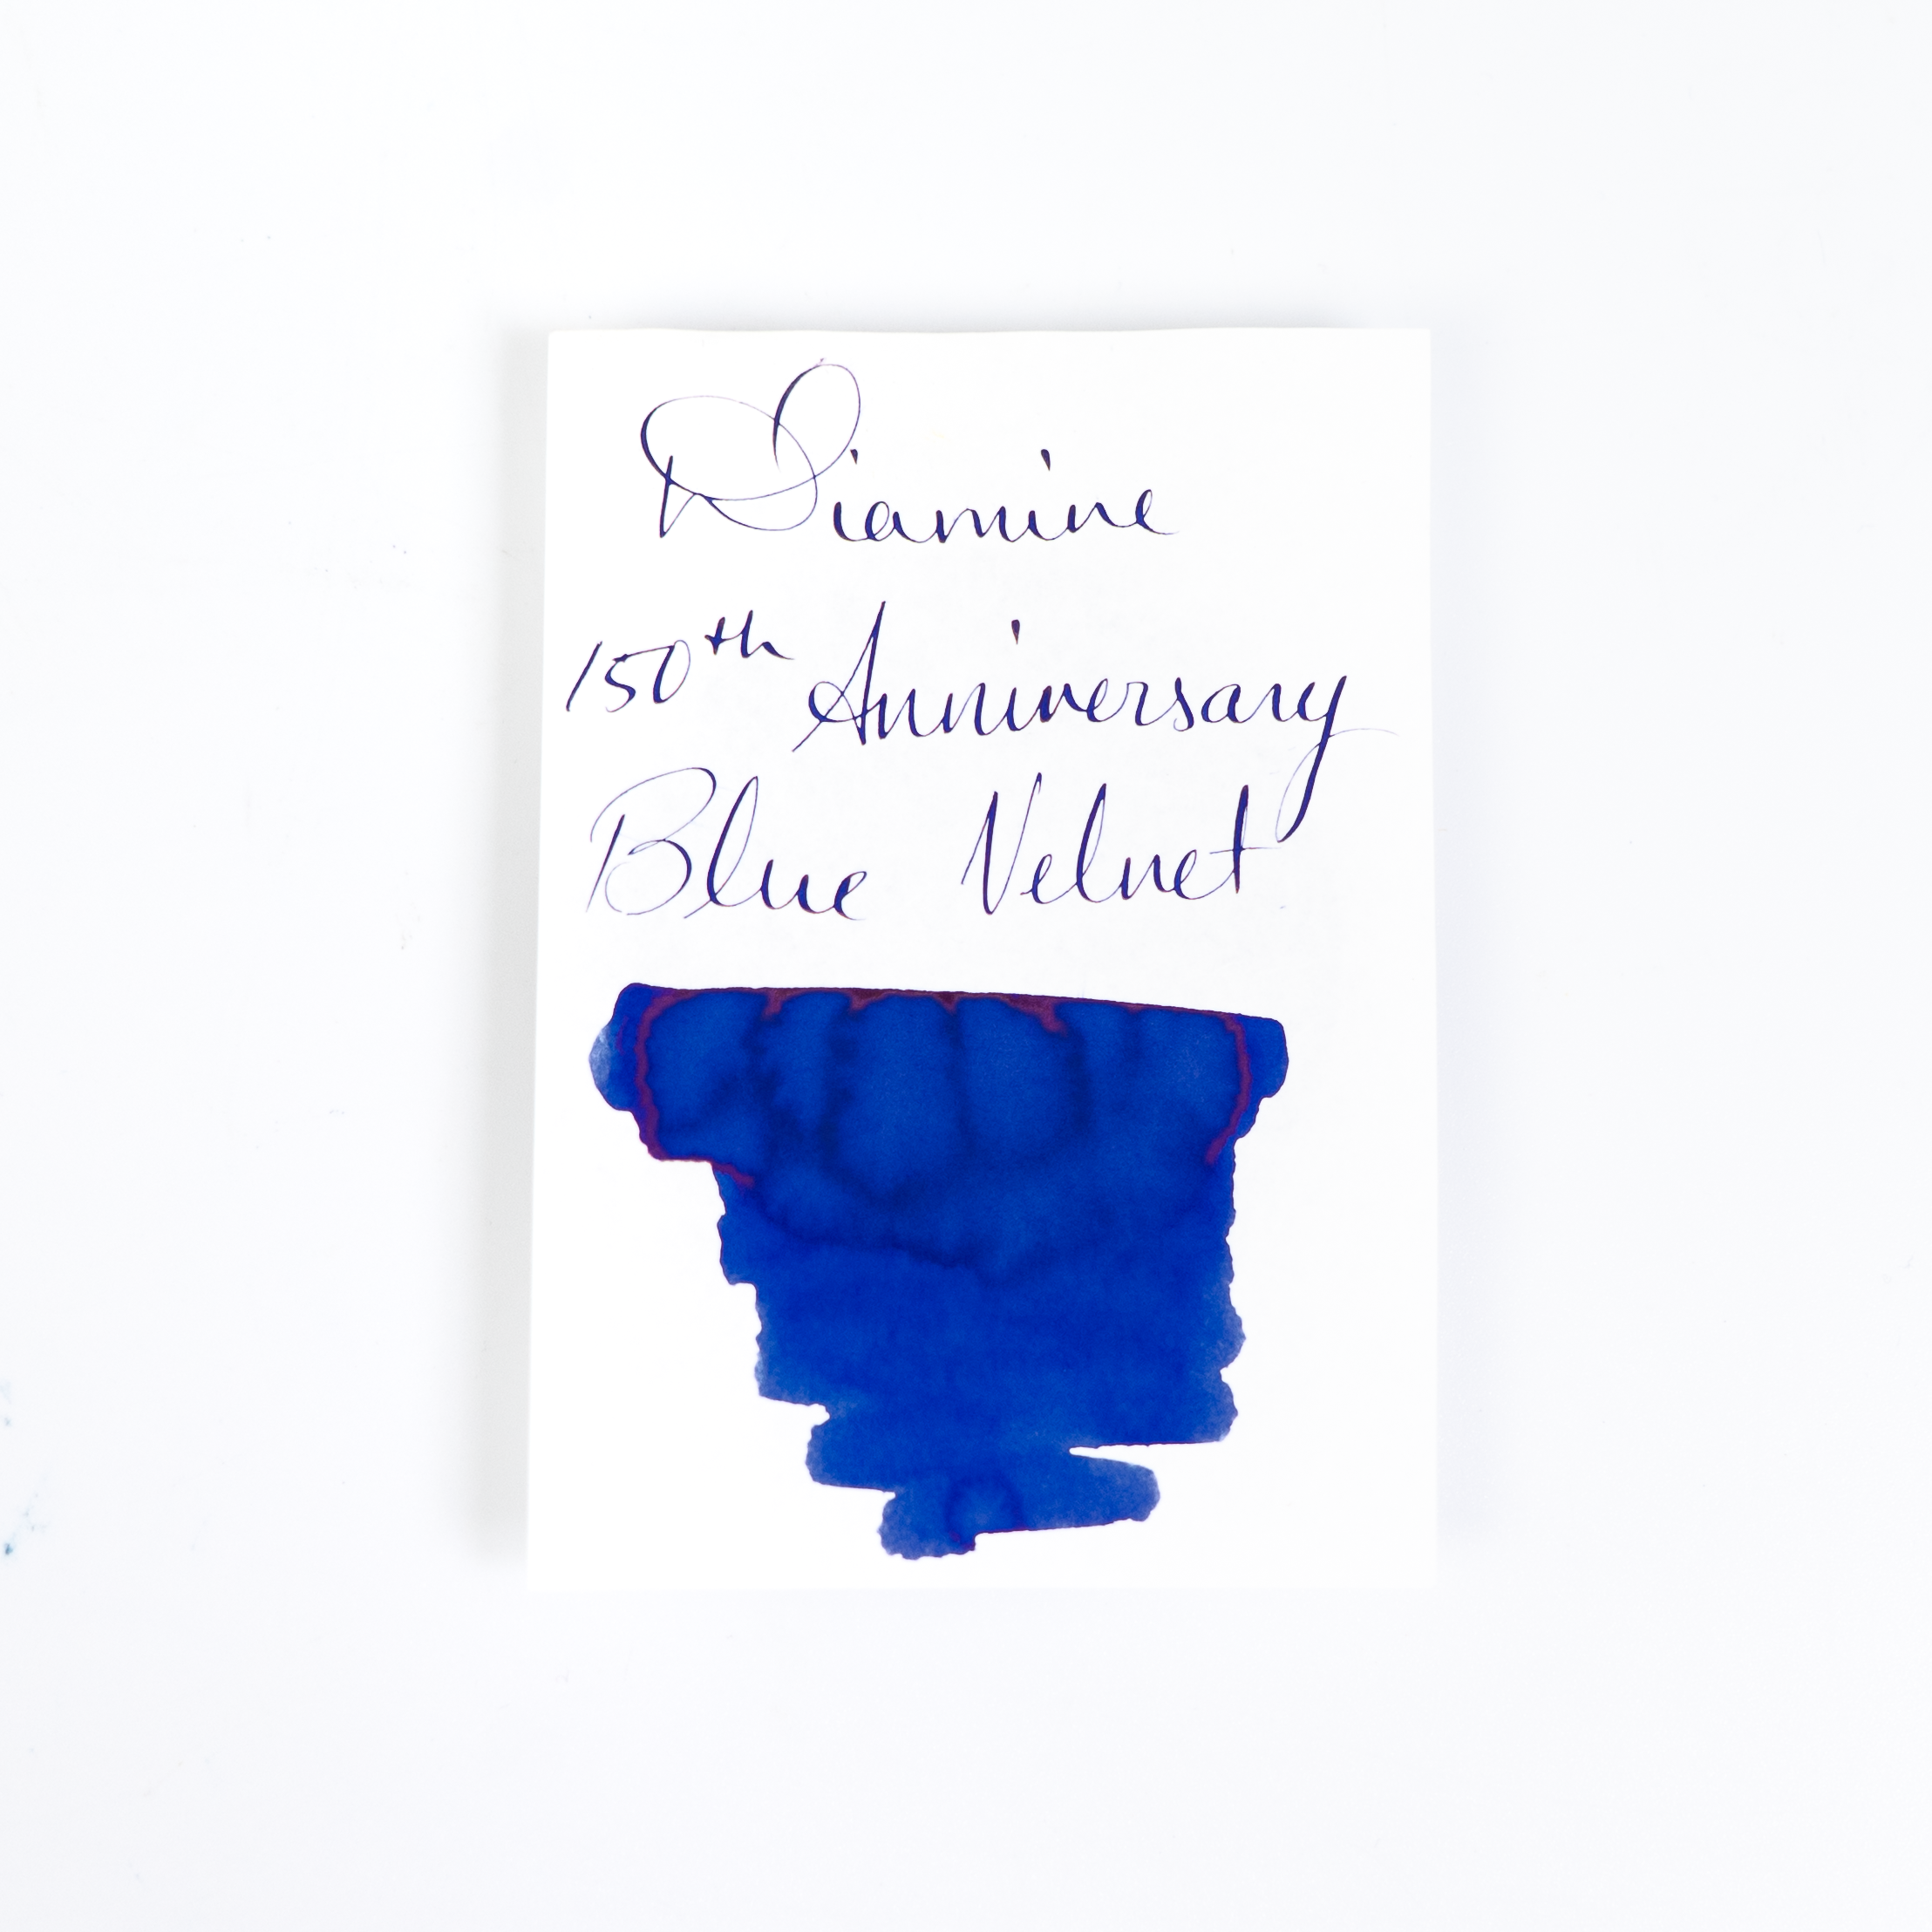 Diamine
150th Anniversary
Blue Velvet